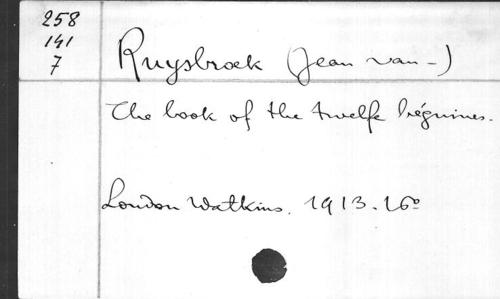 258
141
7
Ruysbroek (Jean van -)
The book of the twelfe béguines.
London Watkins. 1913. 16º